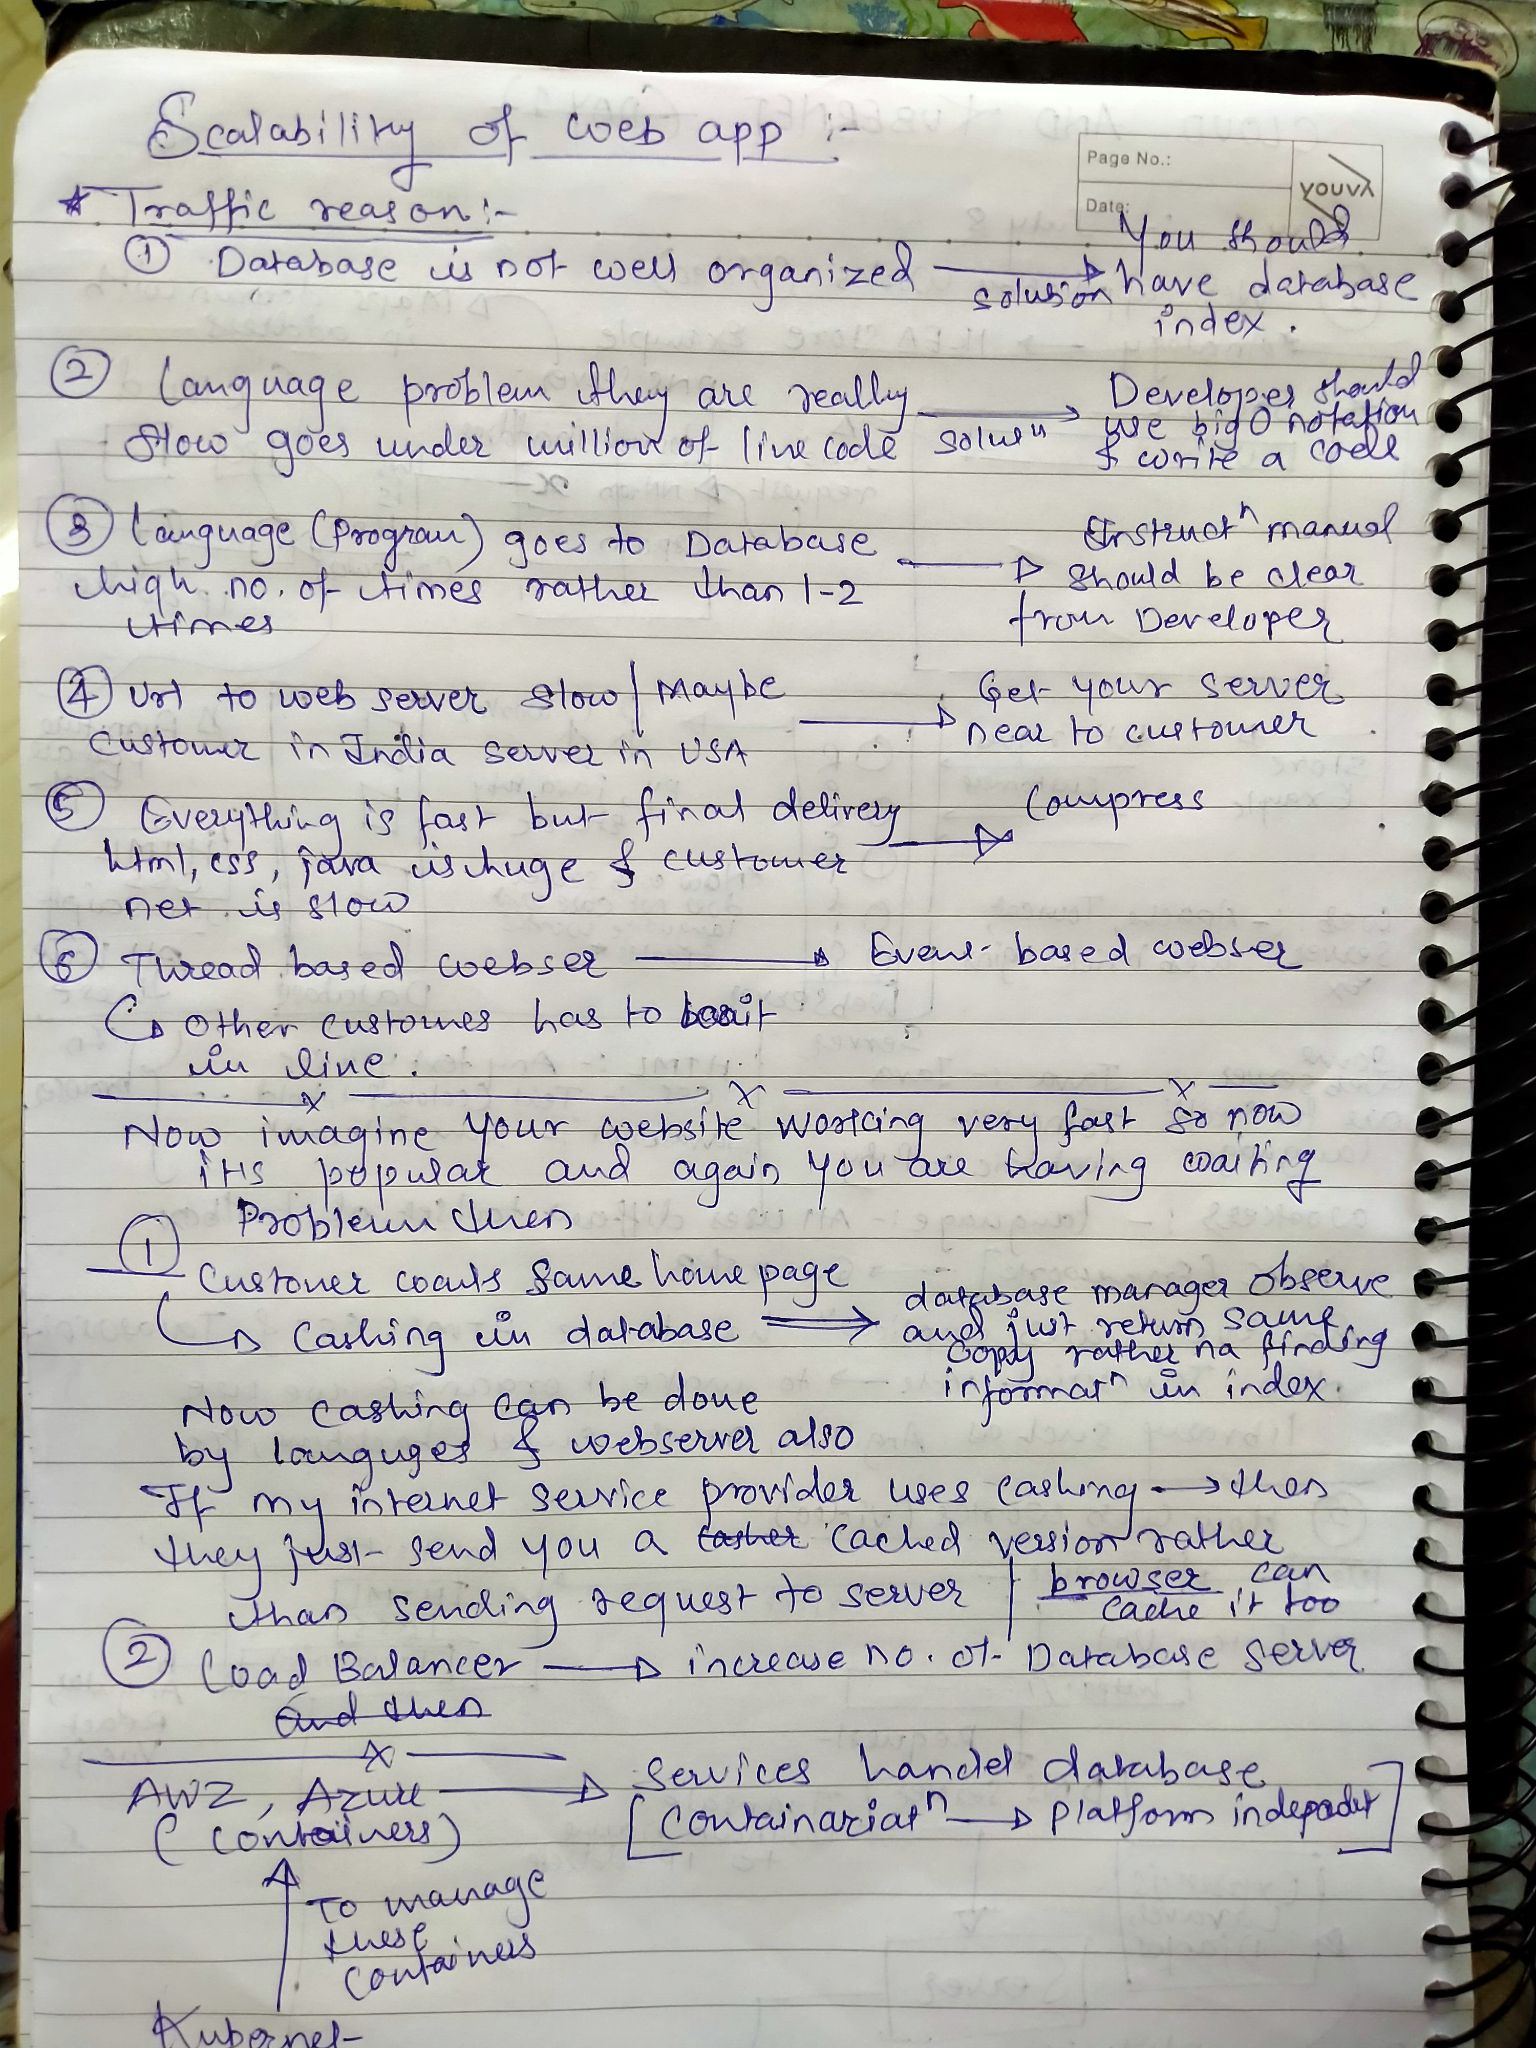 Scalability of web app :-
Page No.:
Date:
youva
* Traffic reason :-
① Database is not well organized → solution You should have database index.
② Language problem they are really
slow goes under million of line code
soluⁿ → Developer should
use big O notation
& write a code
③ Language (Program) goes to Database
high no. of times rather than 1-2
times
→ Instructⁿ manual
should be clear
from Developer
④ Url to web server slow / Maybe
customer in India server in USA
→ Get your server
near to customer
⑤ Everything is fast but final delivery
html, css, java is huge & customer
net is slow
→ Compress
⑥ Thread based webser → Event-based webser
↳ Other customes has to wait
in line.
Now imagine your website working very fast so now
its popular and again you are having waiting
Problem then
① Customer wants same home page
↳ Cashing in database ⇒ database manager observe
and just return same
copy rather na finding
informatⁿ in index.
Now cashing can be done
by languges & webserver also
If my internet service provider uses cashing → then
they just send you a casher cached version rather
than sending request to server | browser can
cache it too
② Load Balancer → increase no. of Database server
and then
AWZ, Azure → Services handel database
(Containers) [Containariatⁿ → Platform indepadet]
↑ To manage
these
containers
Kubernet